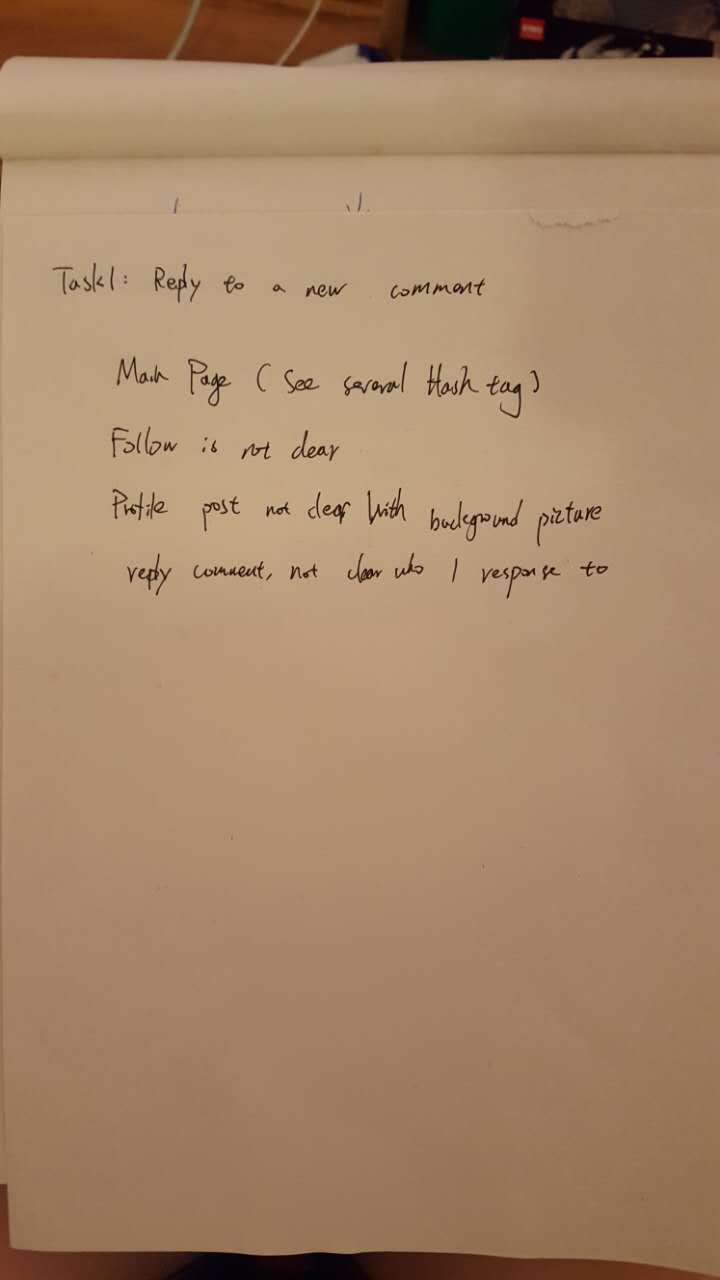 Task1: Reply to a new comment
Main Page (See several Hash tag)
Follow is not clear
Profile post not clear with background picture
reply comment, not clear who I response to